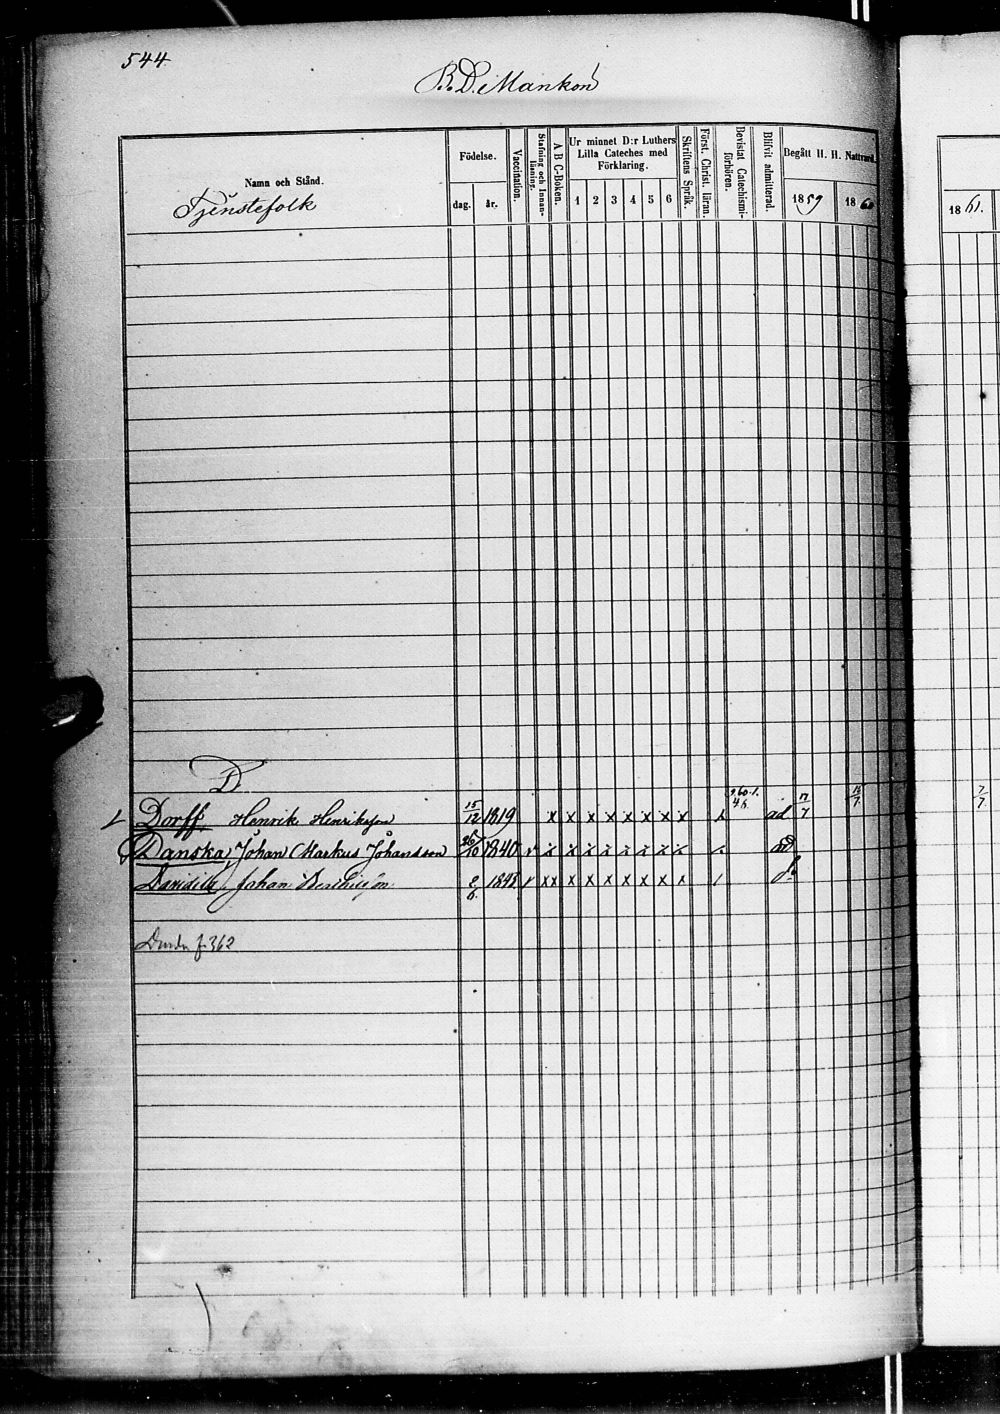 544
B. D. Mankon
Namn och Stånd.
Tjenstefolk
Födelse.
dag. år.
Vaccination.
Stafning och Innanläsning.
A B C-Boken.
Ur minnet D:r Luthers Lilla Cateches med Förklaring.
1 2 3 4 5 6
Skriftens Språk.
Först. Christ. läran.
Bevistat Catechismiförhören.
Blifvit admitterad.
Begått H. H. Nattvard.
1859 1860
1861.
D.
Dorff, Henrik Henriksson 15/12 1819 x x x x x x x x ad 17/7
Danska, Johan Markus Johansson 26/10 1840 v x x x x x x x x ad
Johan 2/6. 1843 v x x x x x x x x x
f. 362
7/7